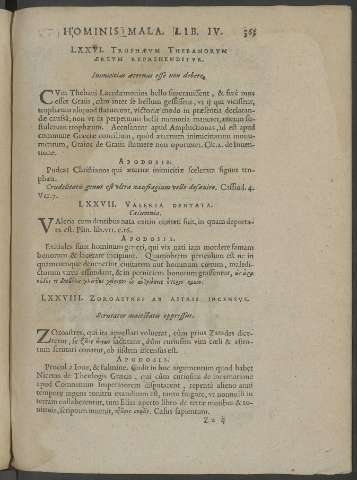 HOMINIS MALA. LIB. IV. 365
LXXVI. TROPHÆUM THEBANORUM
ÆREUM REPREHENDITUR.
Inimicitias æternas esse non debere.
CUm Thebani Lacedæmonios bello superavissent, & ferè mos
esset Græcis, cùm inter se bellum gessissent, ut ii qui vicissent,
trophæum aliquod statuerent, victoriæ modo in præsentia declaran-
dæ causâ, non ut in perpetuum belli memoria maneret, æneum sta-
tuerunt trophæum. Accusantur apud Amphictyonas, id est apud
commune Græciæ concilium, quòd æternum inimicitiarum monu-
mentum, Graios de Graiis statuere non oporteret. Cic. 2. de Inven-
APODOSIS.
Pudeat Christianos qui æternæ inimicitiæ scelerati figunt tro-
phæum.
Crudelitatis genus est ultra naufragium velle desævire. Cassiod. 4.
Var. 7.
LXXVII. VALERIA DENTATA.
Calumnia.
VAleria cum dentibus nata exitio civitati fuit, in quam deporta-
ta est. Plin. lib. VII. c. 16.
APODOSIS.
Exitiales sunt hominum greges, qui vix nati jam mordere famam
bonorum & lacerare incipiunt. Quantobrem periculum est ne in
quamcumque deveniet civitatem aut hominum cœtum, maledi-
ctorum virus effundant, & in perniciem bonorum grassentur,
LXXVIII. ZOROASTRES AB ASTRIS INCENSUS.
Scrutator majestatis oppressus.
ZOroastres, qui ita appellari voluerat, cùm prius Zarades dice-
retur, se jactitans, dum curiosius vim cœli & astro-
rum scrutari conatur, ab iisdem incensus est.
APODOSIS.
Procul à Jove, & fulmine. Colit in hoc argumentum quod habet
Nicetas de Theologis Græcis, qui cùm curiosiùs de incarnatione
apud Comnenum Imperatorem disputarent, repentè alieno anni
tempore ingens tonitru exauditum est, totus fragore, ut nonnulli in
terram collaberentur, tum Elias aperto libro de terræ motibus & to-
nitruis, scriptum invenit, Casus sapientum.